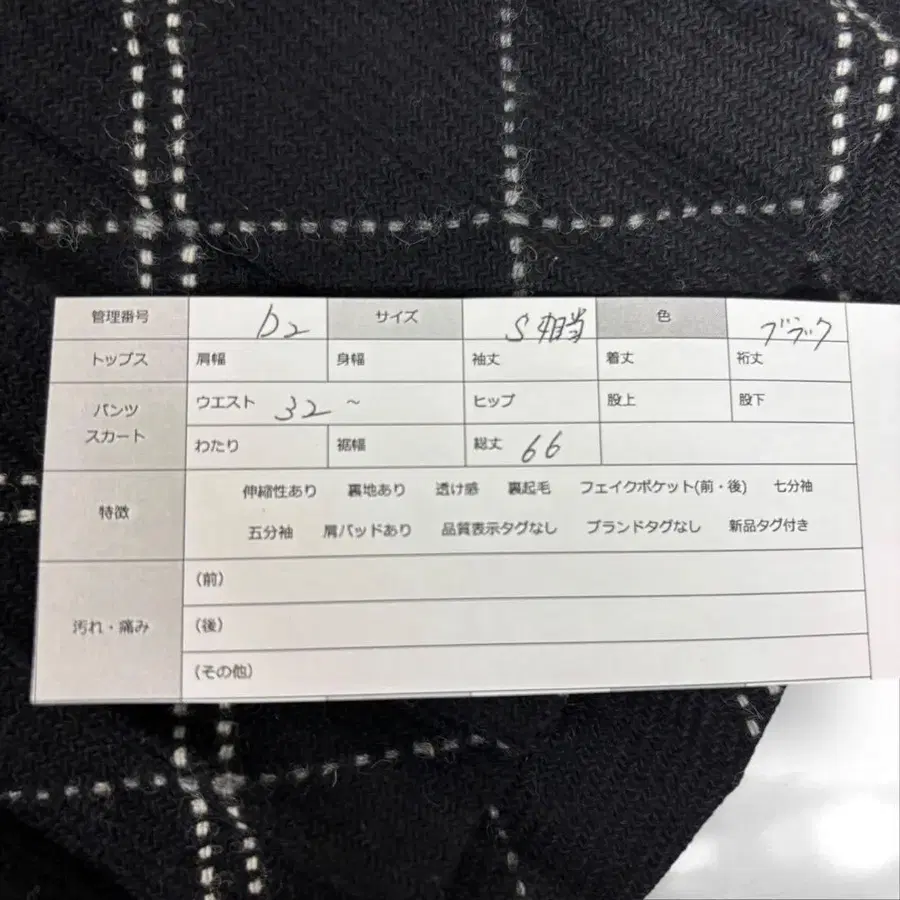 管理番号 b2 サイズ S相当 色 ブラック
トップス 肩幅 身幅 袖丈 着丈 裄丈
パンツ スカート ウエスト 32 ~ ヒップ 股上 股下
わたり 裾幅 総丈 66
特徴 伸縮性あり 裏地あり 透け感 裏起毛 フェイクポケット(前・後) 七分袖
五分袖 肩パッドあり 品質表示タグなし ブランドタグなし 新品タグ付き
汚れ・痛み (前)
(後)
(その他)